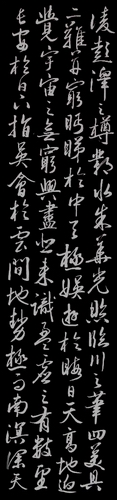 凌彭澤之樽鄴水朱華光照臨川之筆四美具
二難并窮眄睇於中天極娛遊於暇日天高地迥
覺宇宙之無窮興盡悲來識盈虛之有數望
長安於日下指吳會於雲間地勢極而南溟深天